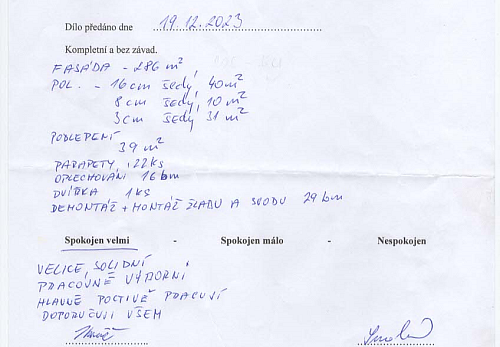 Dílo předáno dne 19.12.2023
Kompletní a bez závad.
FASÁDA - 286 m²
POL. - 16cm šedý, 40m²
8cm šedý, 10m²
3cm šedý 31 m²
PODLEPENÍ
39 m²
PARAPETY, 22ks
OPLECHOVÁNÍ 16bm
DVÍŘKA 1KS
DEMONTÁŽ + MONTÁŽ ŽLABU A SVODU 29bm
Spokojen velmi - Spokojen málo - Nespokojen
VELICE SOLIDNÍ
PRACOVNĚ VÝBORNÍ
HLAVNĚ POCTIVĚ PRACUJÍ
DOPORUČUJI VŠEM